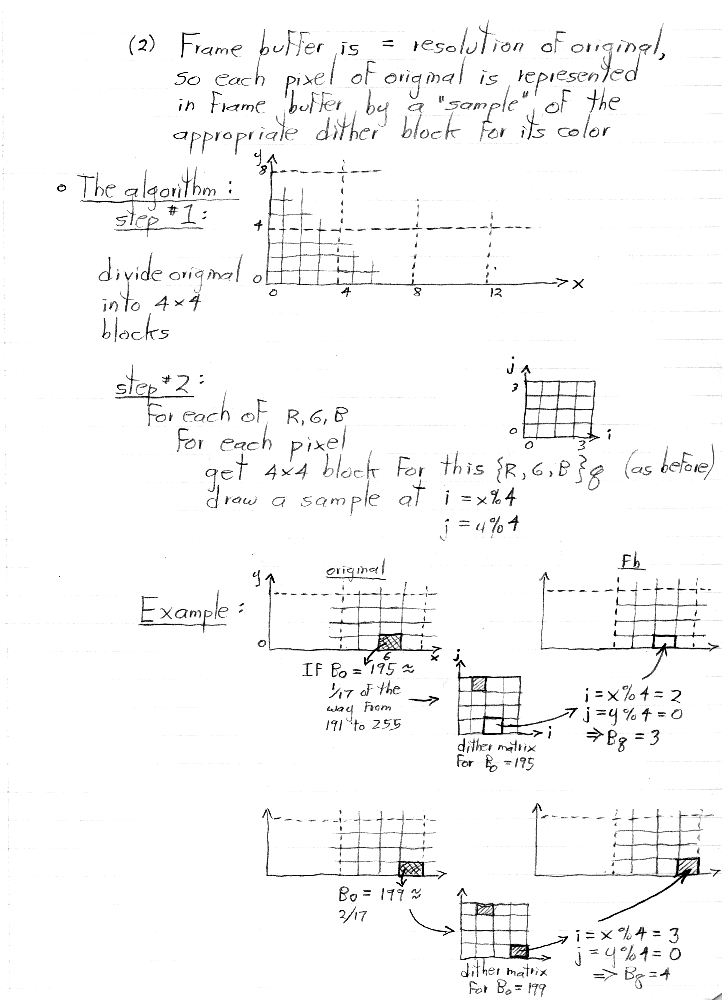 (2) Frame buffer is = resolution of original,
so each pixel of original is represented
in frame buffer by a "sample" of the
appropriate dither block for its color
o The algorithm:
step #1:
divide original
into 4x4
blocks
y
8
4
0
0 4 8 12 x
step #2:
For each of R, G, B
For each pixel
get 4x4 block for this {R, G, B}g (as before)
draw a sample at i = x%4
j = y%4
j
3
0
0 3 i
Example:
original
y
0
6 x
Fb
IF Bo = 195 ≈
1/17 of the
way from
191 to 255
j
i
dither matrix
for Bo = 195
i = x%4 = 2
j = y%4 = 0
⇒ Bg = 3
Bo = 199 ≈
2/17
dither matrix
for Bo = 199
i = x%4 = 3
j = y%4 = 0
⇒ Bg = 4